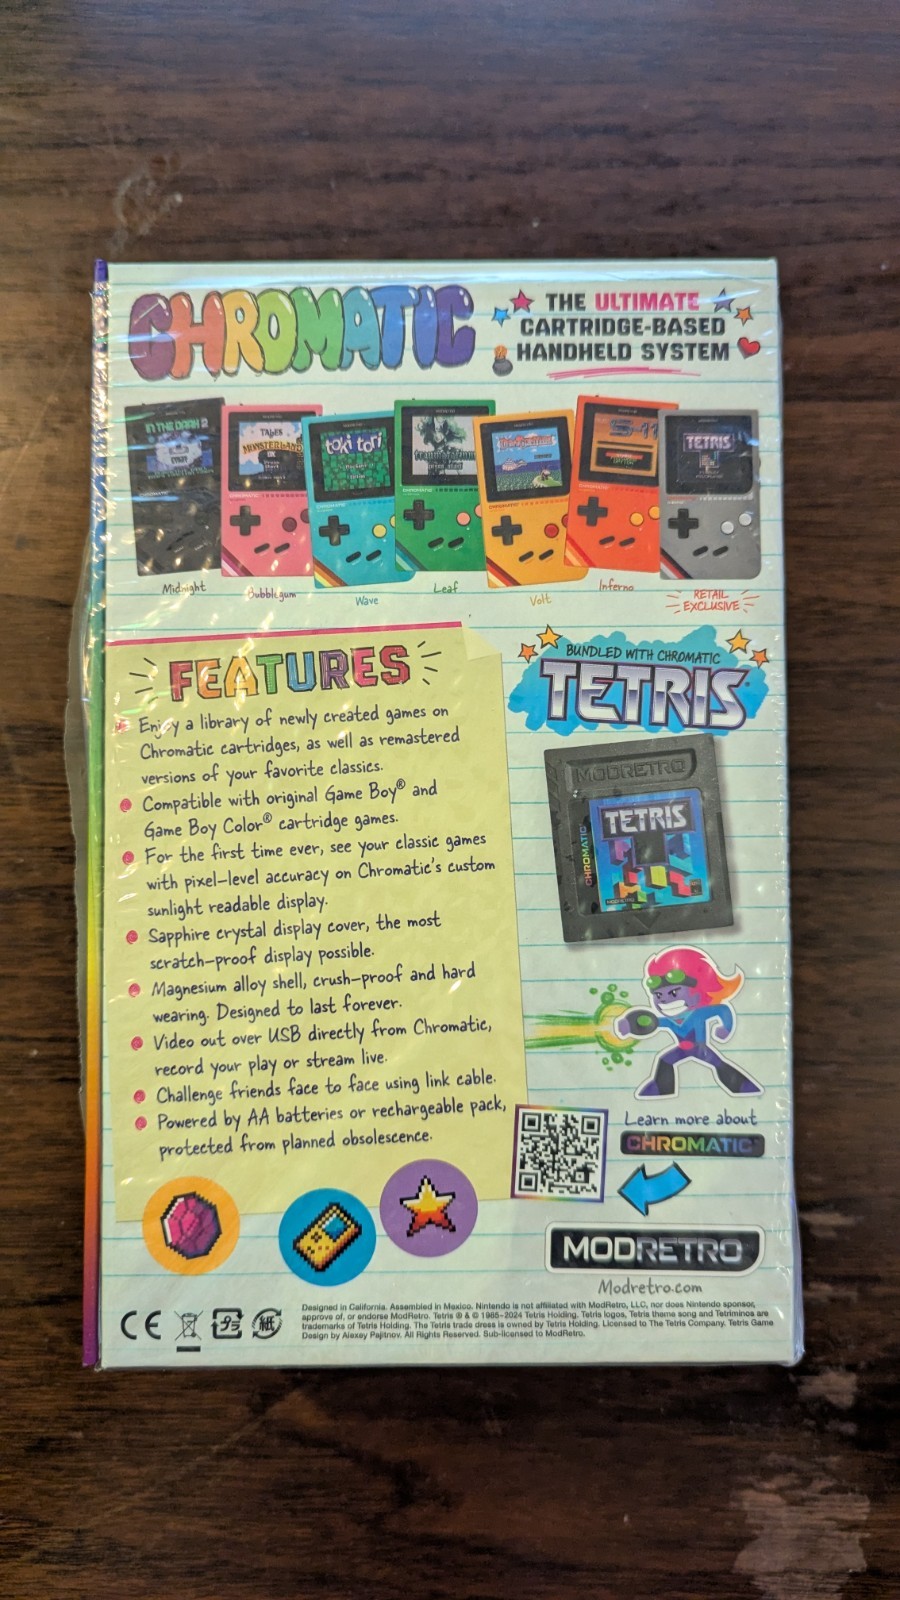 CHROMATIC
THE ULTIMATE
CARTRIDGE-BASED
HANDHELD SYSTEM
IN THE DARK 2
TALES
MONSTERLAND
DX
toki tori
traumatarium
TETRIS
Midnight
Bubblegum
Wave
Leaf
Volt
Inferno
RETAIL
EXCLUSIVE
FEATURES
Enjoy a library of newly created games on
Chromatic cartridges, as well as remastered
versions of your favorite classics.
Compatible with original Game Boy® and
Game Boy Color® cartridge games.
For the first time ever, see your classic games
with pixel-level accuracy on Chromatic's custom
sunlight readable display.
Sapphire crystal display cover, the most
scratch-proof display possible.
Magnesium alloy shell, crush-proof and hard
wearing. Designed to last forever.
Video out over USB directly from Chromatic,
record your play or stream live.
Challenge friends face to face using link cable.
Powered by AA batteries or rechargeable pack,
protected from planned obsolescence.
BUNDLED WITH CHROMATIC
TETRIS
MODRETRO
CHROMATIC
TETRIS
MODRETRO
Learn more about
CHROMATIC
MODRETRO
Modretro.com
CE
プラ
紙
Designed in California. Assembled in Mexico. Nintendo is not affiliated with ModRetro, LLC, nor does Nintendo sponsor,
approve of, or endorse ModRetro. Tetris ® & © 1985-2024 Tetris Holding. Tetris logos, Tetris theme song and Tetriminos are
trademarks of Tetris Holding. The Tetris trade dress is owned by Tetris Holding. Licensed to The Tetris Company. Tetris Game
Design by Alexey Pajitnov. All Rights Reserved. Sub-licensed to ModRetro.